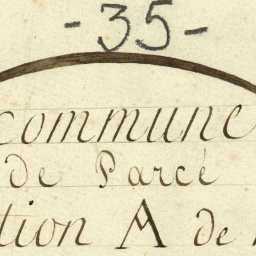 - 35 -
commune
de Parcé
tion A de